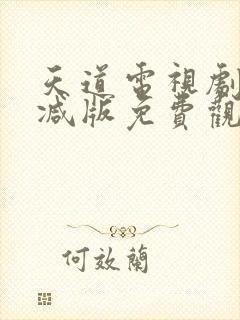 天道電視劇
減版免費觀
何效蘭